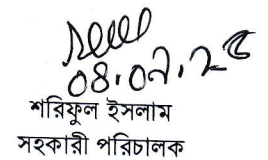 ০৪.০৭.২৫
শরিফুল ইসলাম
সহকারী পরিচালক